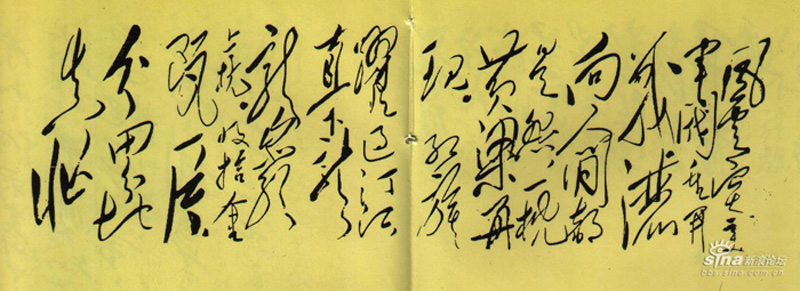 風雲突变
軍閥重開
戰 洒
向人间都
是怨。一枕
黄粱再
现。红旗
躍过汀江
直下
龍岩
上杭。收拾金
瓯一片
分田分地
真忙
sina 新浪论坛
bbs.sina.com.cn